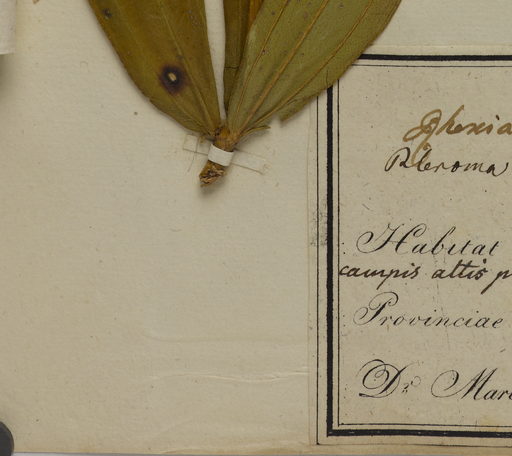 Rhexia
Pleroma
Habitat
campis altis p
Provinciae
Dr. Mar